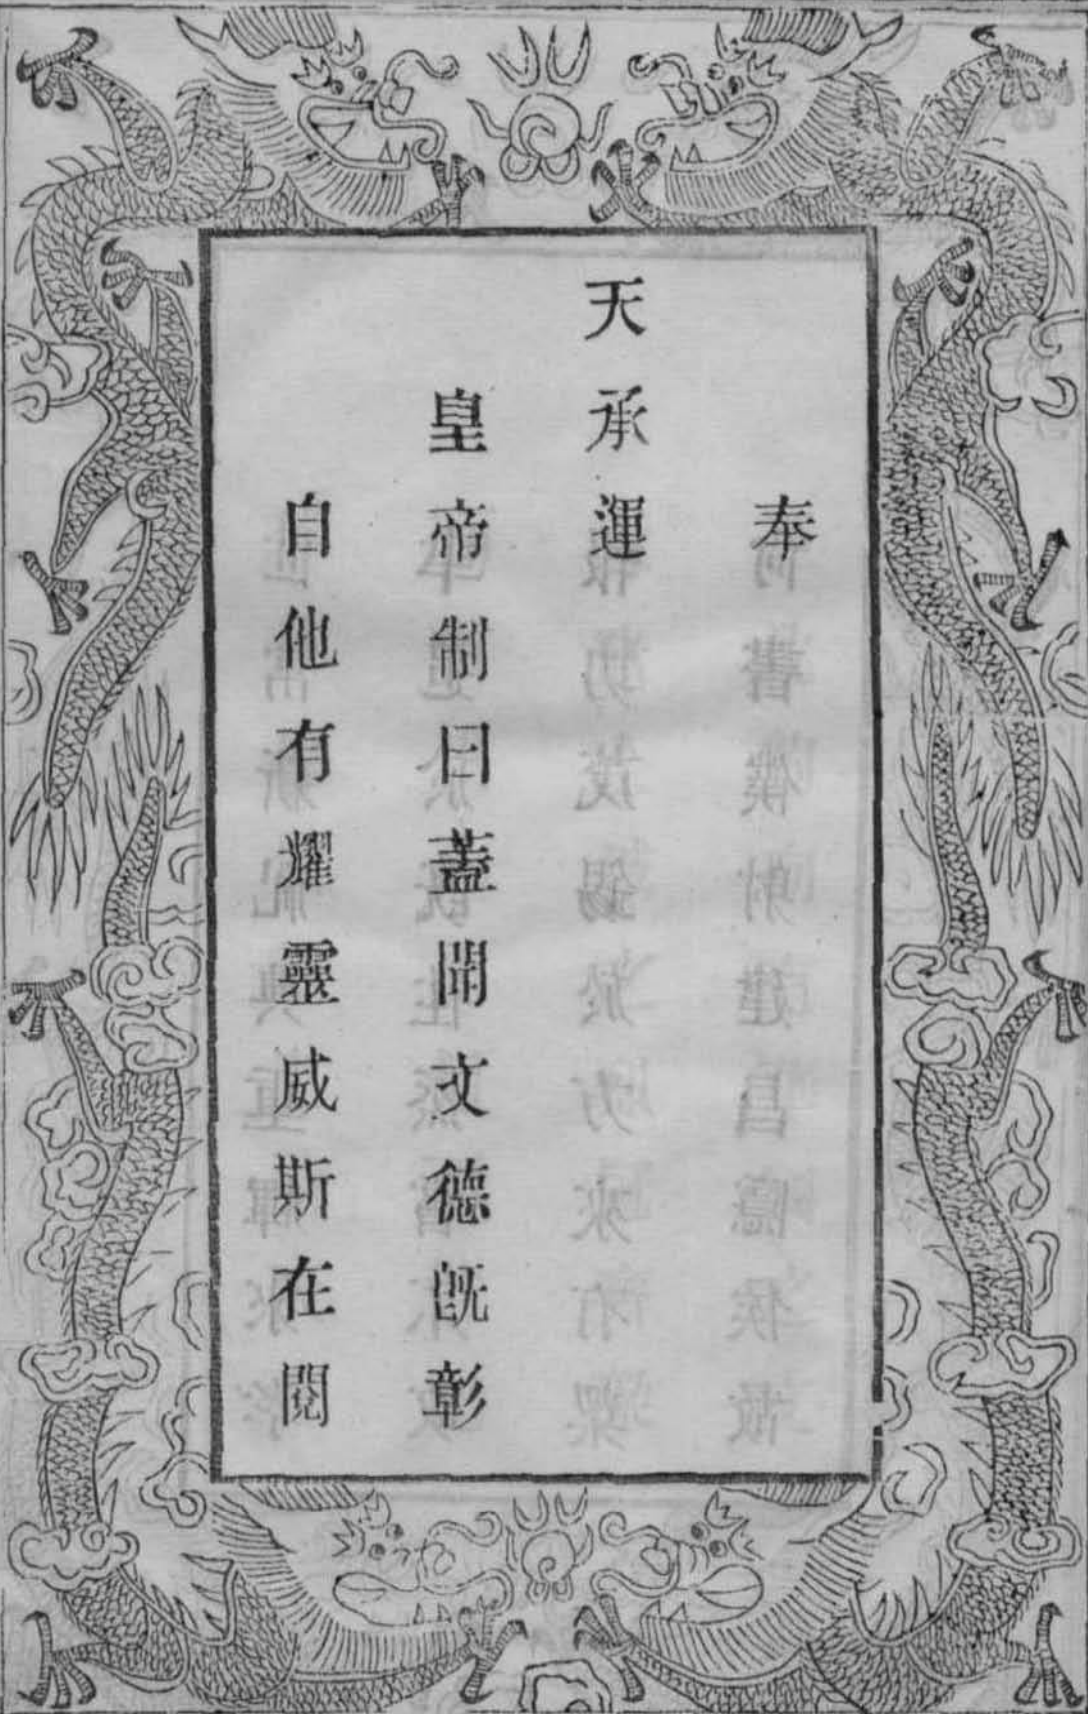 奉
天承運
皇帝制曰蓋聞文德旣彰
自他有耀靈威斯在閱